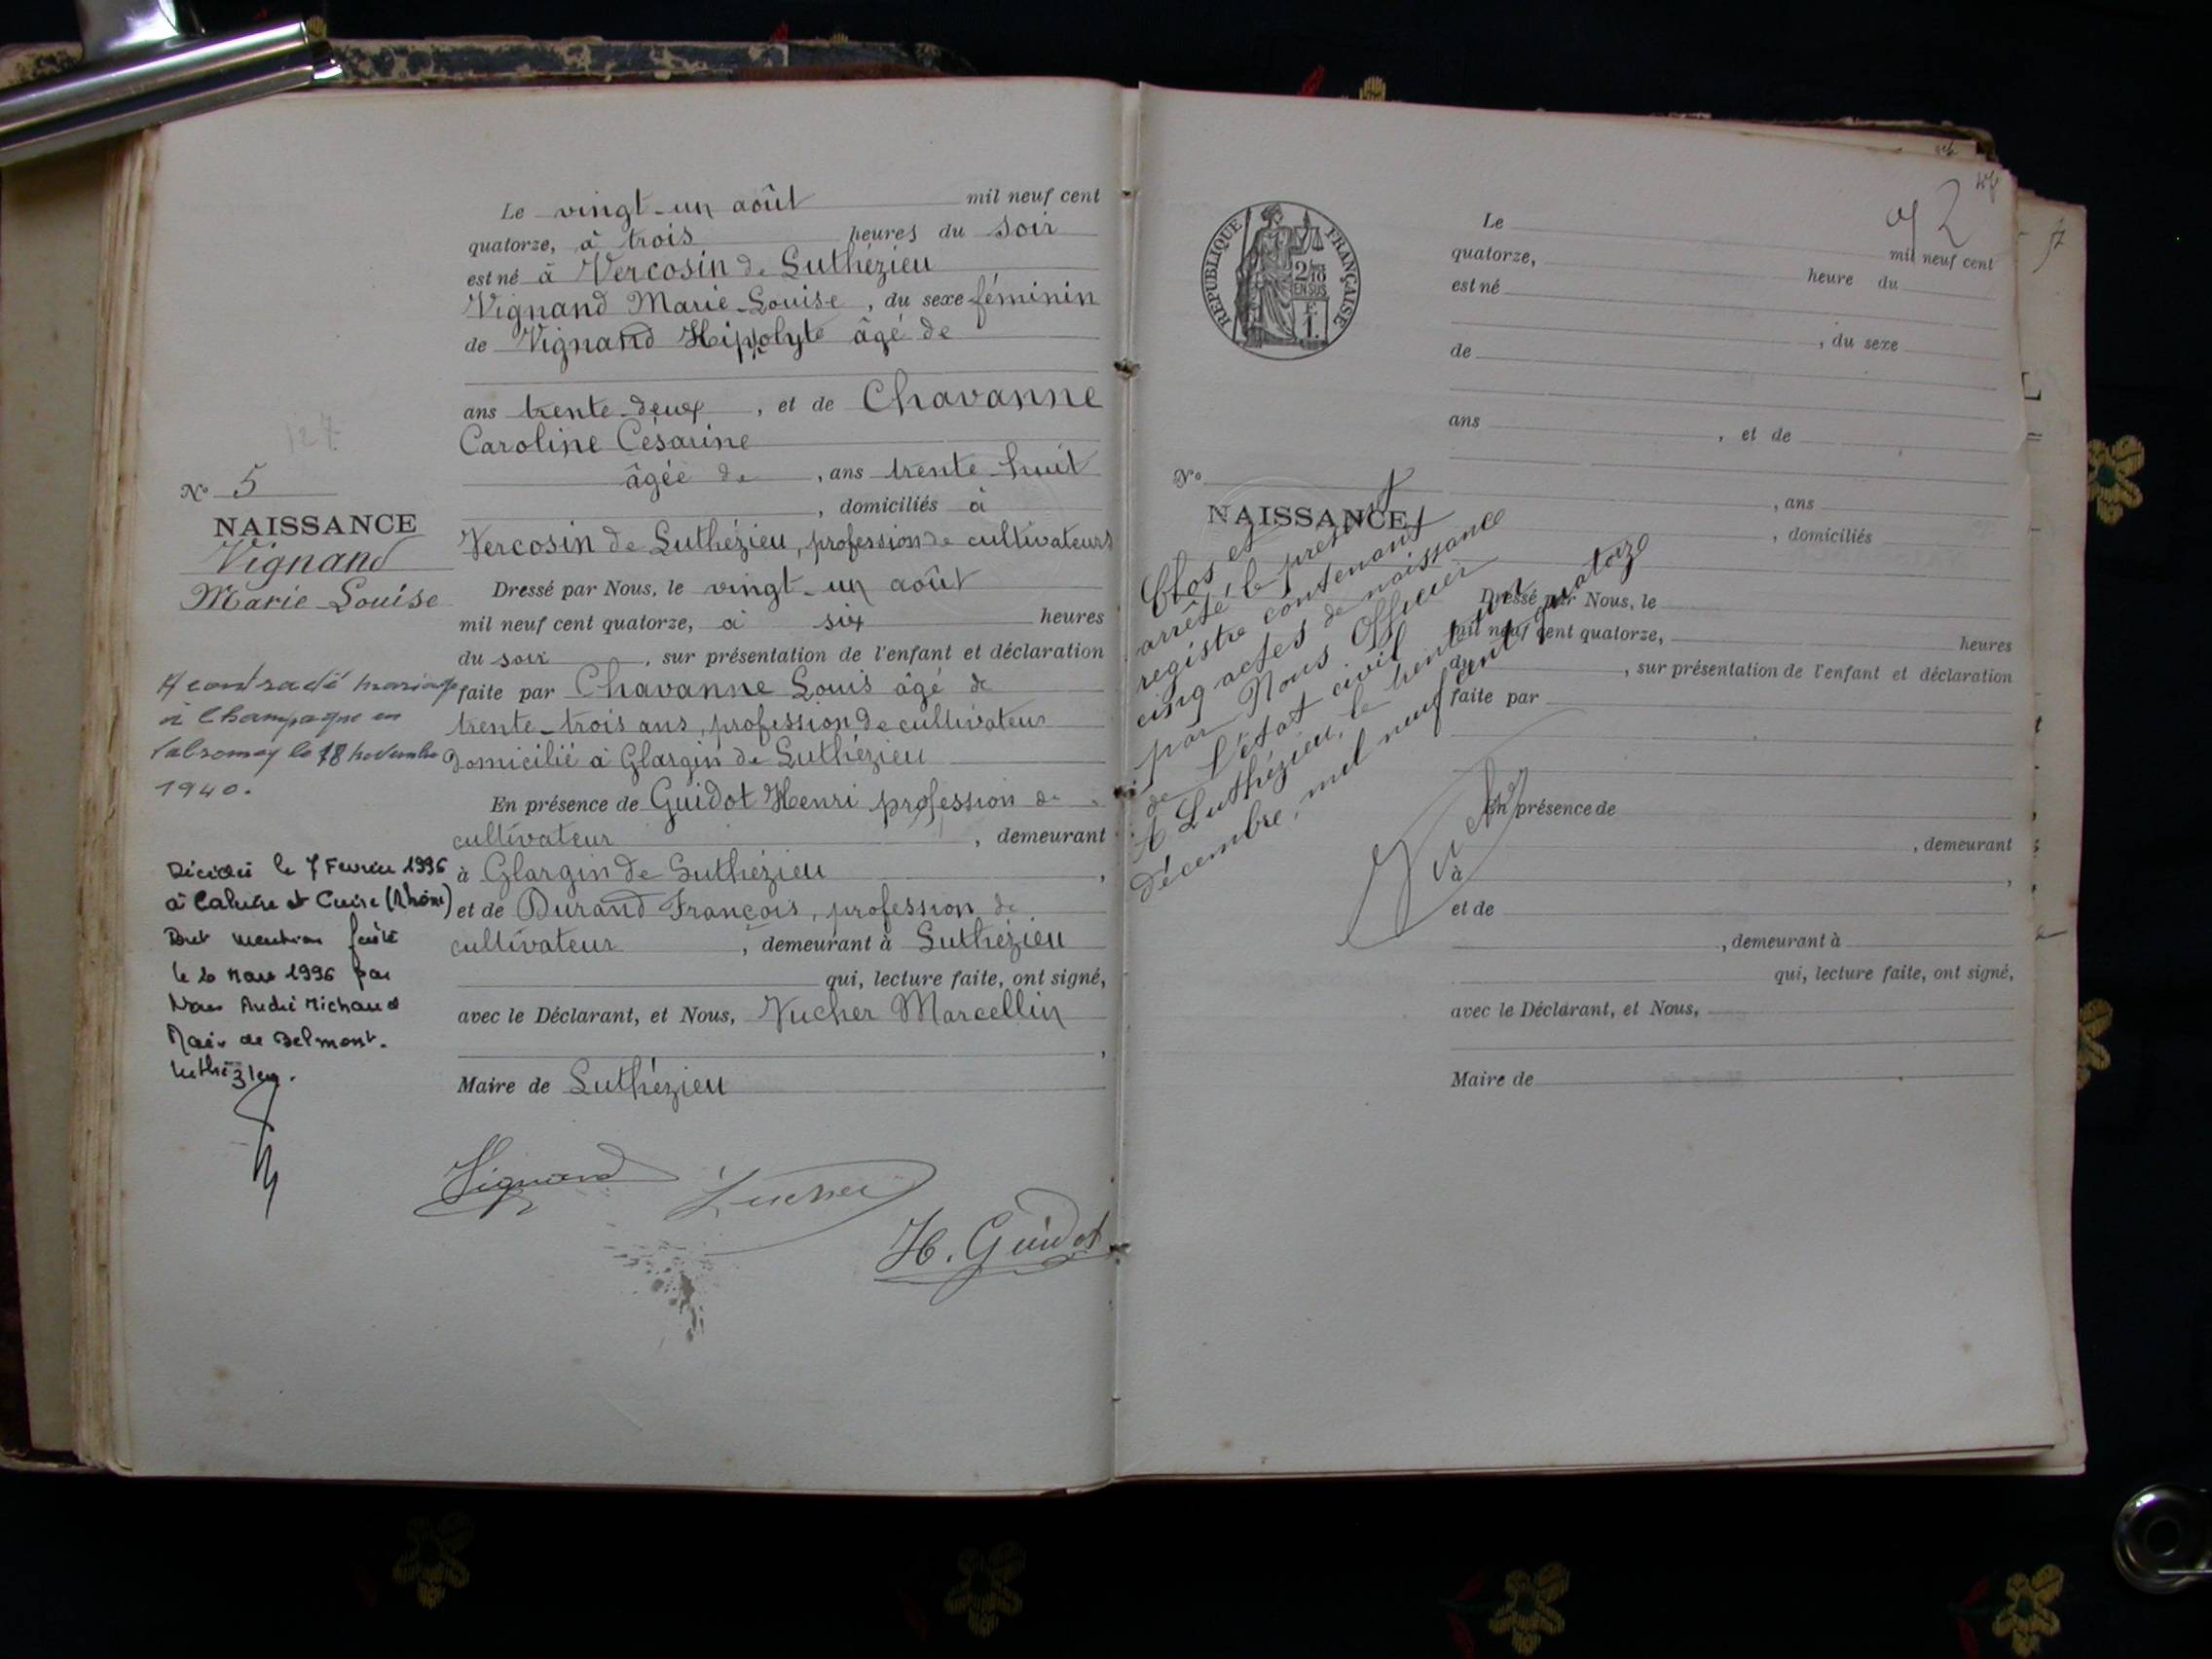 Le vingt-un août mil neuf cent
quatorze, à trois heures du soir
est né à Vercosin de Luthézieu
Vignand Marie-Louise, du sexe féminin
de Vignand Hippolyte âgé de
ans trente-deux, et de Chavanne
Caroline Césarine
âgée de, ans trente huit
, domiciliés à
Vercosin de Luthézieu, profession de cultivateurs
Dressé par Nous, le vingt-un août
mil neuf cent quatorze, à six heures
du soir, sur présentation de l'enfant et déclaration
faite par Chavanne Louis âgé de
trente-trois ans, profession de cultivateur
domicilié à Glargin de Luthézieu
En présence de Guidot Henri profession de
cultivateur, demeurant
à Glargin de Luthézieu,
et de Durand François, profession de
cultivateur, demeurant à Luthézieu
qui, lecture faite, ont signé,
avec le Déclarant, et Nous, Vucher Marcellin
,
Maire de Luthézieu
Vignand
Vucher
H. Guidot
127
No 5
NAISSANCE
Vignand
Marie-Louise
A contracté mariage
à Champagne en
Valromey le 18 novembre
1940.
Décédée le 7 Fevrier 1996
à Caluire et Cuire (Rhône)
Dont mention faite
le 20 Mars 1996 par
Nous André Michaud
Maire de Belmont-
Luthézieu.
RÉPUBLIQUE FRANÇAISE
2/10
EN SUS
F.
1.
92
Le mil neuf cent
quatorze, heure du
est né
, du sexe
de
ans, et de
No
, ans
NAISSANCE
, domiciliés
Dressé par Nous, le
mil neuf cent quatorze, heures
du, sur présentation de l'enfant et déclaration
faite par
En présence de
, demeurant
à,
et de
, demeurant à
qui, lecture faite, ont signé,
avec le Déclarant, et Nous,
Maire de
Clos et
arrêté le présent
registre contenant
cinq actes de naissance
par Nous Officier
de l'état civil
A Luthézieu, le trente un
décembre, mil neuf cent quatorze